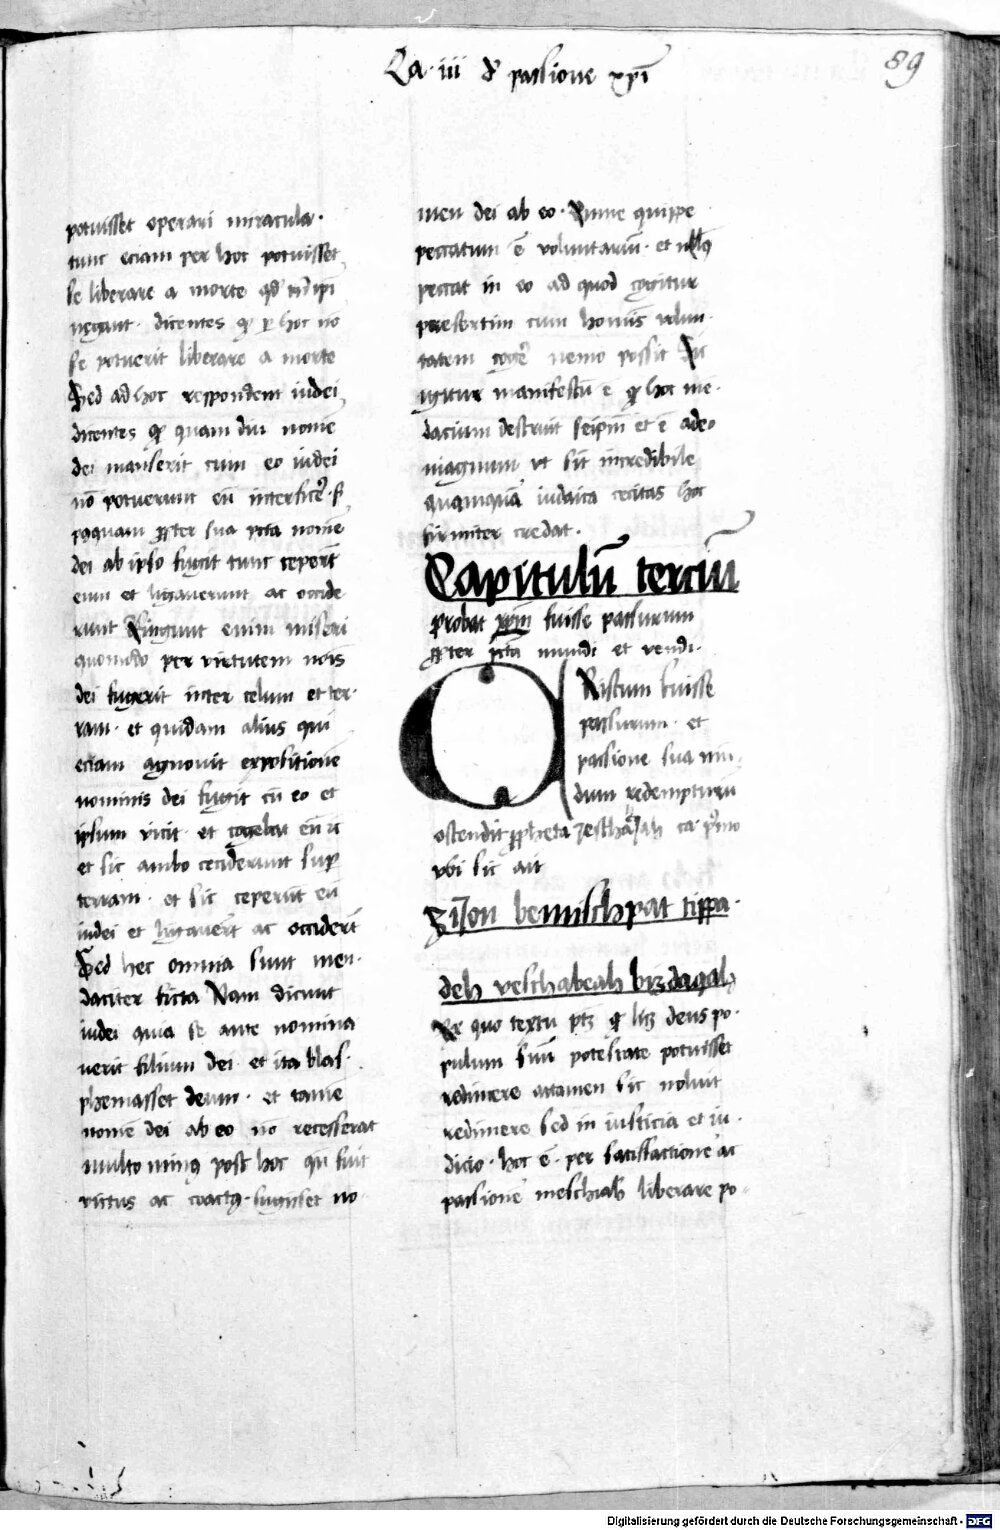 Ca. iii de passione xpi
89
potuisset operari miracula.
tunc eciam per hoc potuisset
se liberare a morte qd tn ipi
negant. dicentes qp p hoc nō
se potuerit liberare a morte
Sed ad hoc respondent iudei
dicentes qp quam diu nomē
dei manserit cum eo iudei
nō potuerunt eū interficē. s
pꝰquam ꝓpter sua pctā nomē
dei ab ipso fugit tunc ceperūt
eum et ligauerunt ac occide
runt Fingunt enim miseri
quomodo per virtutem nois
dei fugerit inter celum et ter-
ram. et quidam alius qui
eciam agnouit expositionē
nominis dei fugit cū eo et
ipsum vicit et cogebat eū
et sic ambo ceciderunt sup
terram. et sic ceperūt eū
iudei et ligauerūt ac occiderūt
Sed hec omnia sunt men-
daciter ficta Nam dicunt
iudei quia se ante nomina
uerit filium dei. et ita blas-
phemasset deum. et tamē
nomē dei ab eo nō recesserat
multo minꝰ post hoc qn fuit
victus ac coactꝰ. fugisset no-
men dei ab eo. Nunc quippe
peccatum ē voluntariū. et nllꝰ
peccat in eo ad quod cogitur
presertim cum homīs volun-
tatem cogē nemo possit Sit
igitur manifestū ē qp hoc mē-
dacium destruit seipm et ē adeo
magnum vt sit incredibile
quamquā iudaica cecitas hoc
firmiter credat.
Capitulū terciū
probat xpm fuisse passurum
ꝓpter pctā mundi et vendi.
Cristum fuisse
passurum. et
passione sua mū-
dum redempturū
ostendit ꝓpheta Jeschajah ca. pmo
vbi sic ait
Zijon bemischpat tippa-
deh veschabeah bizdaqah
Ex quo textu ptz qp licz deus po-
pulum suū potestate potuisset
redimere attamen sic noluit
redimere sed in iusticia et iu-
dicio. hoc ē. per satisfactionē ac
passionē meschiah liberare po-
Digitalisierung gefördert durch die Deutsche Forschungsgemeinschaft - DFG